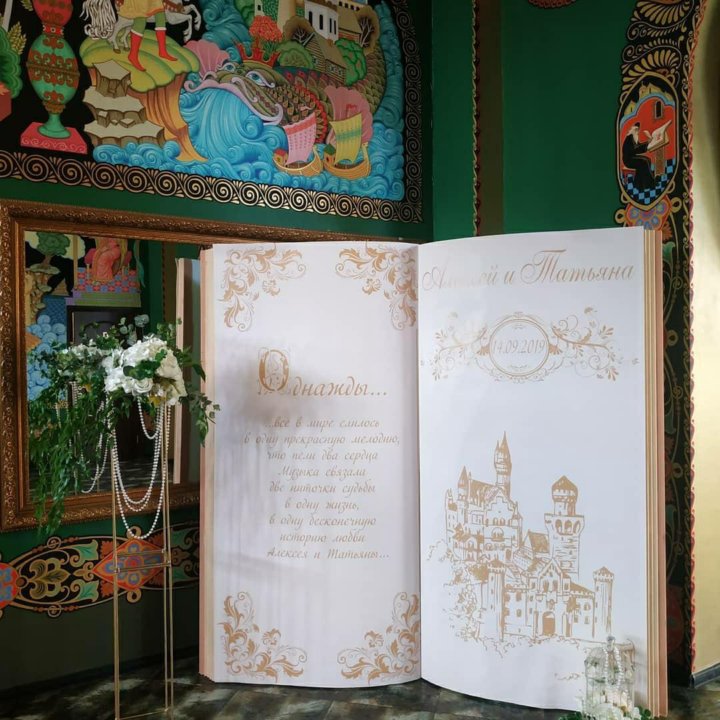 Однажды...
...всё в мире слилось
в одну прекрасную мелодию,
что пели два сердца
Музыка связала
две ниточки судьбы
в одну жизнь,
в одну бесконечную
историю любви
Алексея и Татьяны...
Алексей и Татьяна
14.09.2019